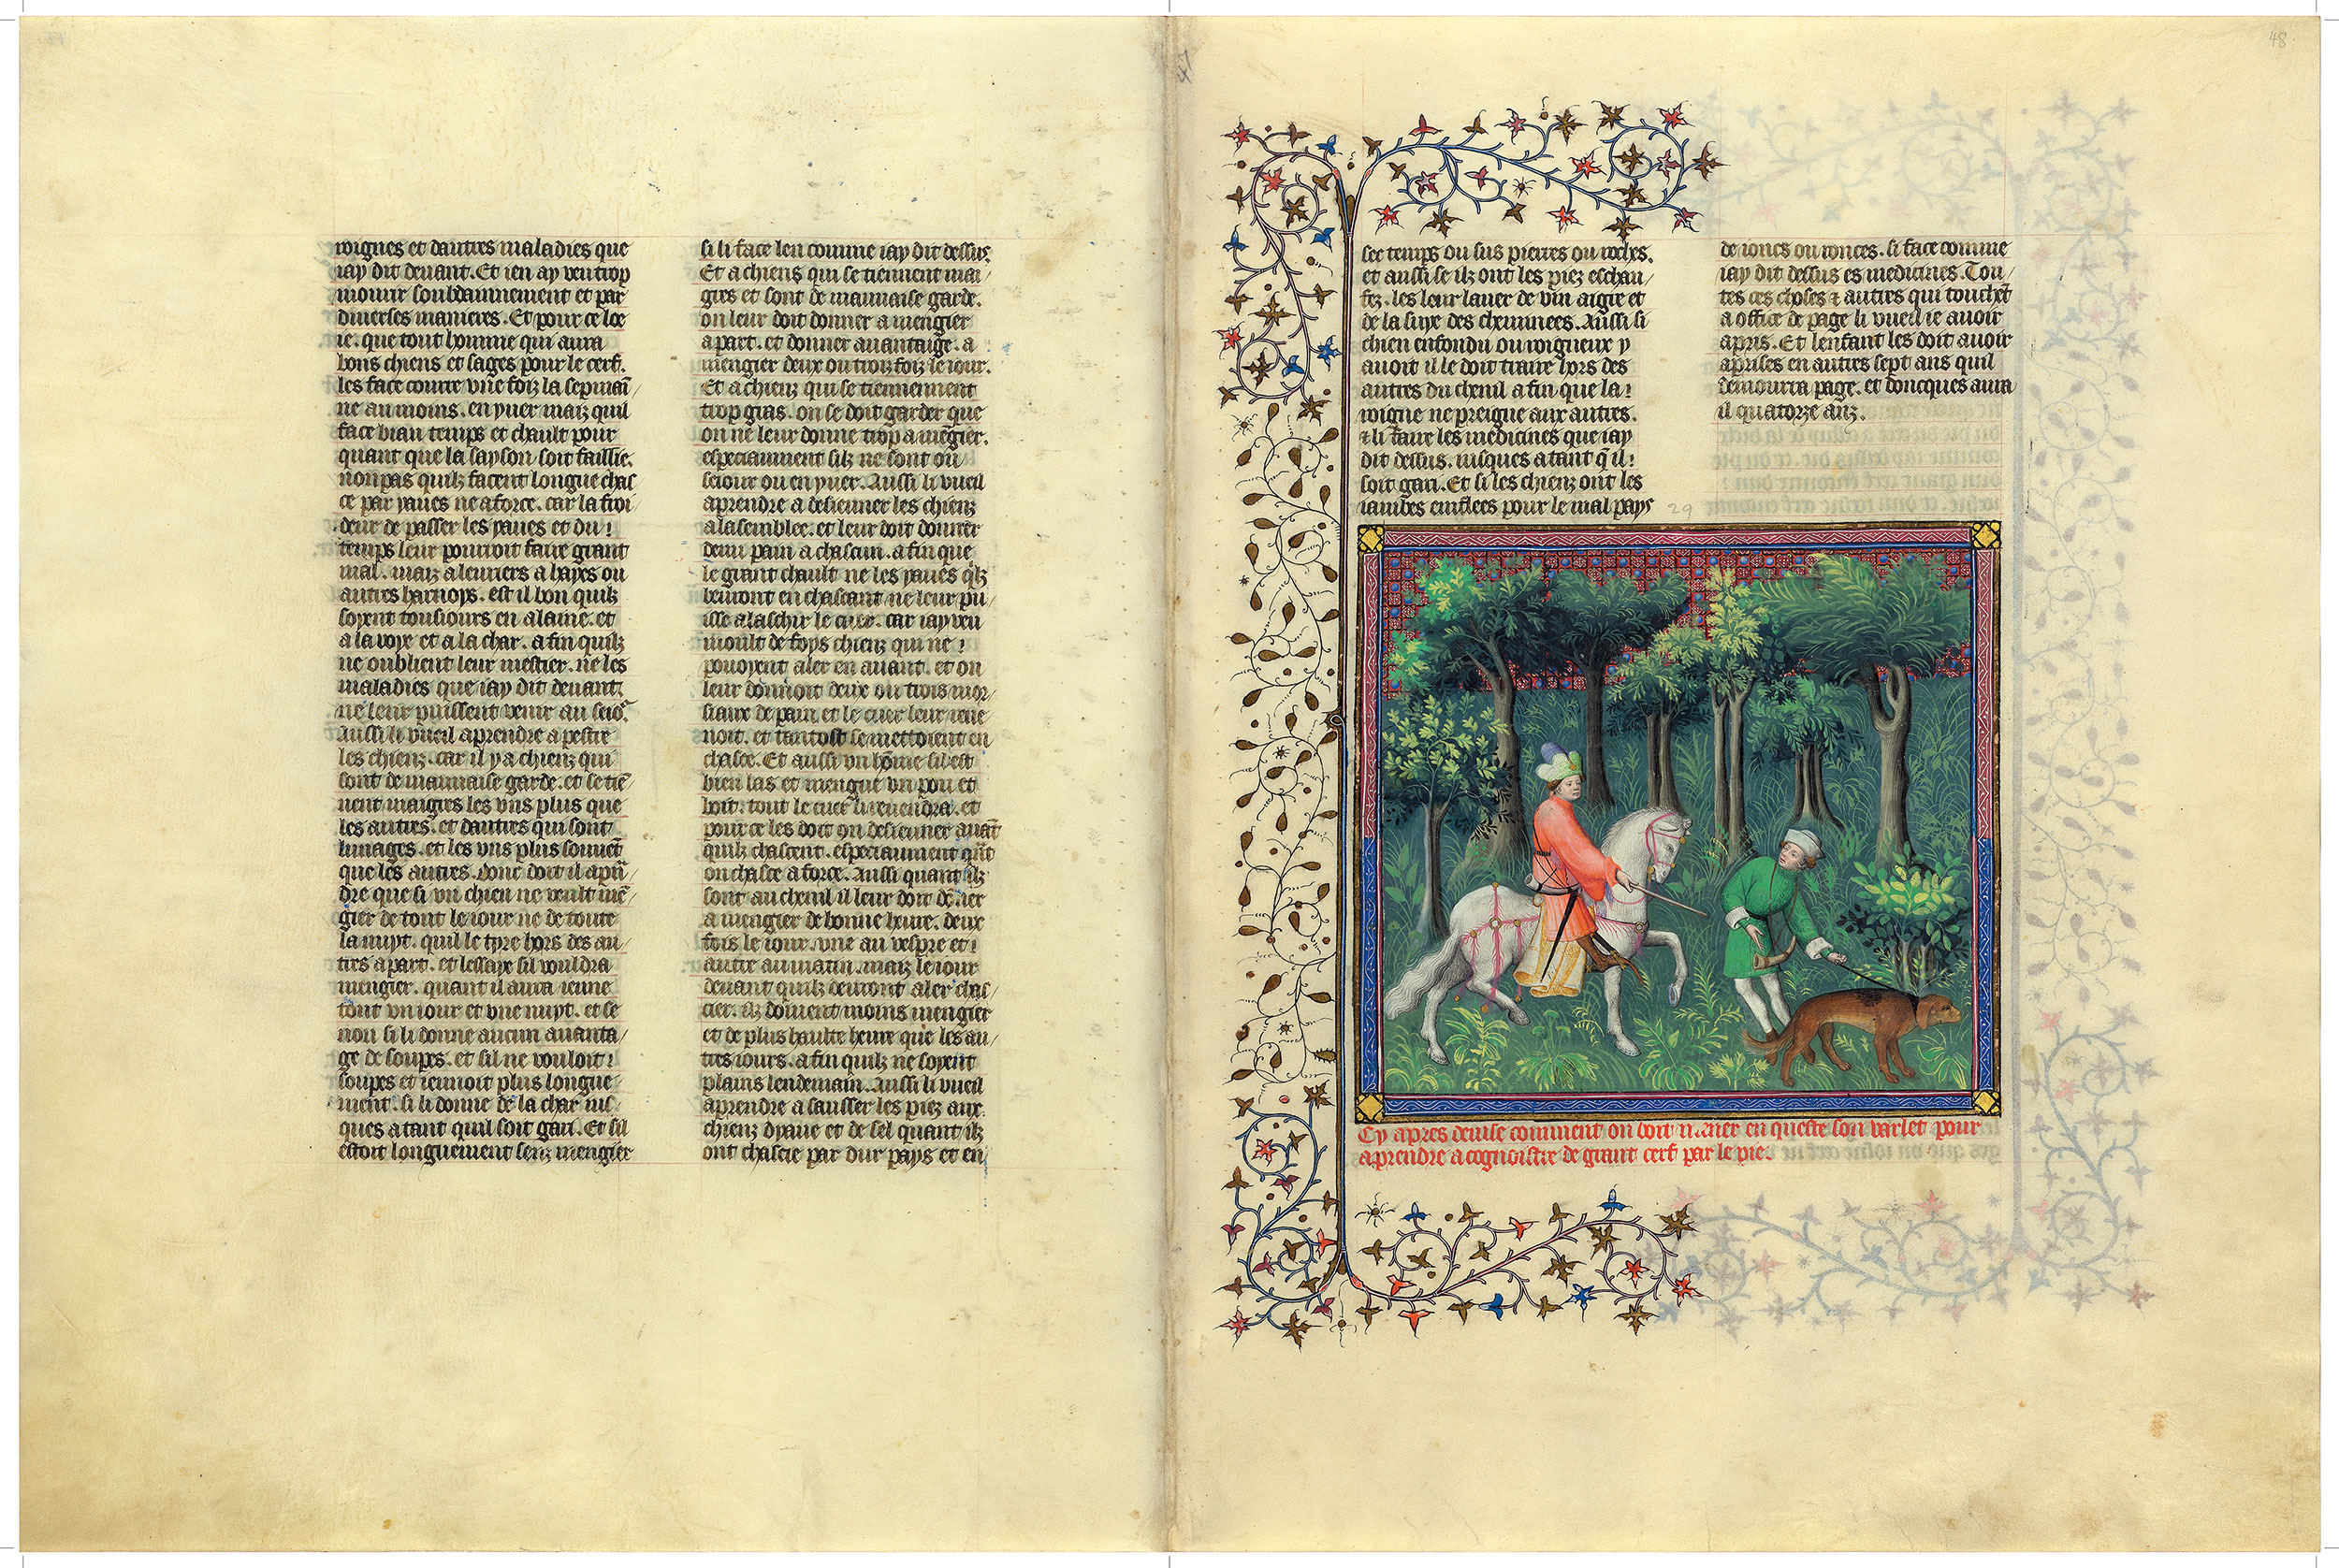 roignes et dautres maladies que
iay dit deuant. Et ien ay veu trop
mourir soubdainnement et par
diuerses manieres. Et pour ce loe
ie. que tout homme qui aura
bons chiens et sages pour le cerf.
les face courre vne foiz la sepmai
ne au moins. en yuer maiz quil
face biau temps et chault pour
quant que la sayson soit faillie.
non pas quilz facent longue chas
ce par yaues ne a force. car la froi
deur de passer les yaues et du
temps leur pourroit faire grant
mal. maiz a leuriers a hayes ou
autres harnoys. est il bon quilz
soyent tousiours en alaine. et
a la voye et a la char. a fin quilz
ne oublient leur mestier. ne les
maladies que iay dit deuant
ne leur puissent venir au seio.
Aussi li vueil aprendre a pestre
les chienz. car il y a chienz qui
sont de mauuaise garde. et se tie
nent maigres les vns plus que
les autres. et dautres qui sont
lunages. et les vns plus souuet
que les autres. Donc doit il apre
dre que si vn chien ne veult me
gier de tout le iour ne de toute
la nuyt. quil le tyre hors des au
tres a part. et lessaye sil vouldra
mengier. quant il aura ieune
tout vn iour et vne nuyt. et se
non si li donne aucun auanta
ge de soupes. et sil ne vouloit
soupes et ieunoit plus longue
ment. si li donne de la char ius
ques a tant quil soit gari. Et sil
estoit longuement senz mengier
si li face len comme iay dit dessus.
Et a chiens qui se tiennent mai
gres et sont de mauuaise garde.
on leur doit donner a mengier
a part. et donner auantaige. a
mengier deux ou troiz foiz le iour.
Et a chienz qui se tiennennent
trop gras. on se doit garder que
on ne leur donne trop a megier.
especiaument silz ne sont ou
seiour ou en yuer. Aussi li vueil
aprendre a desieuner les chienz
a lasemblee. et leur doit donner
demi pain a chascun. a fin que
le grant chault ne les yaues qlz
beuront en chascant ne leur pu
isse alaschir le cuer. car iay veu
moult de foys chienz qui ne
pouoyent aler en auant. et on
leur donnoit deux ou trois mor
siaux de pain et le cuer leur reue
noit. et tantost se mettoient en
chasce. Et aussi vn home sil est
bien las et mengue vn pou et
boit. tout le cuer li reuendra. et
pour ce les doit on desieuner auat
quilz chascent. especiaument qut
on chasce a force. Aussi quant ilz
sont au chenil il leur doit doner
a mengier de bonne heure. deux
fois le iour. vne au vespre et
autre au matin. maiz le iour
deuant quilz deuront aler chas
cier. ilz doiuent moins mengier
et de plus haulte heure que les au
tres iours. a fin quilz ne soyent
plains lendemain. Aussi li vueil
aprendre a sausser les piez aux
chienz dyaue et de sel quant ilz
ont chascie par dur pays et en
48
sec temps ou sus pierres ou roches.
et aussi se ilz ont les piez eschau
fez. les leur lauer de vin aigre et
de la suye des cheminees. Aussi si
chien enfondu ou roigneux y
auoit il le doit traire hors des
autres du chenil a fin que la
roigne ne preigne aux autres.
et li faire les medicines que iay
dit dessus. iusques a tant q il
soit gari. Et si les chienz ont les
iambes emflees pour le mal pays
29
de ioncs ou ronces. si face comme
iay dit dessus es medicines. Tou
tes ces choses et autres qui touchet
a office de page li vueil ie auoir
apris. Et lenfant les doit auoir
aprises en autres sept ans quil
demourra page. et doncques aura
il quatorze anz.
Cy apres deuise comment on doit mener en queste son varlet pour
aprendre a cognoistre de grant cerf par le pie.